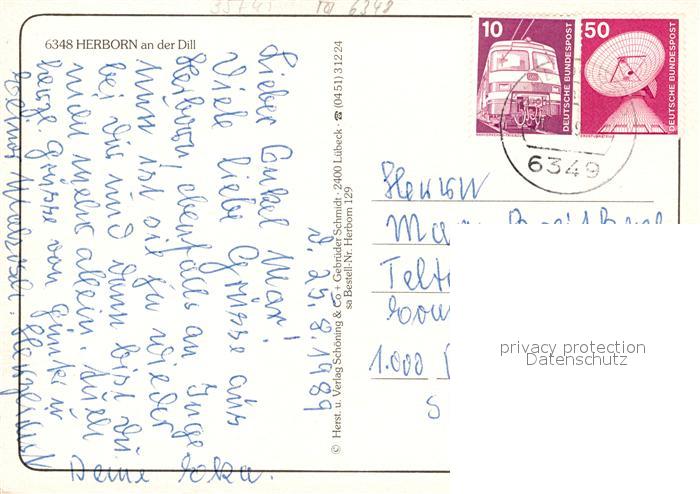 35745 6348
6348 HERBORN an der Dill
d. 25.8.1989
Lieber Onkel Max!
Viele liebe Grüsse aus
Herborn, ebenfalls an Inge
Nun ist sie ja wieder
bei Dir und dann bist Du
nicht mehr allein. Auch
Grüsse von Günter u.
Deine
© Herst. u. Verlag Schöning & Co + Gebrüder Schmidt · 2400 Lübeck · ☎ (04 51) 3 12 24
sa Bestell-Nr. Herborn 129
10 DEUTSCHE BUNDESPOST
50 DEUTSCHE BUNDESPOST
6349
Herrn
Telt
1.000
privacy protection
Datenschutz